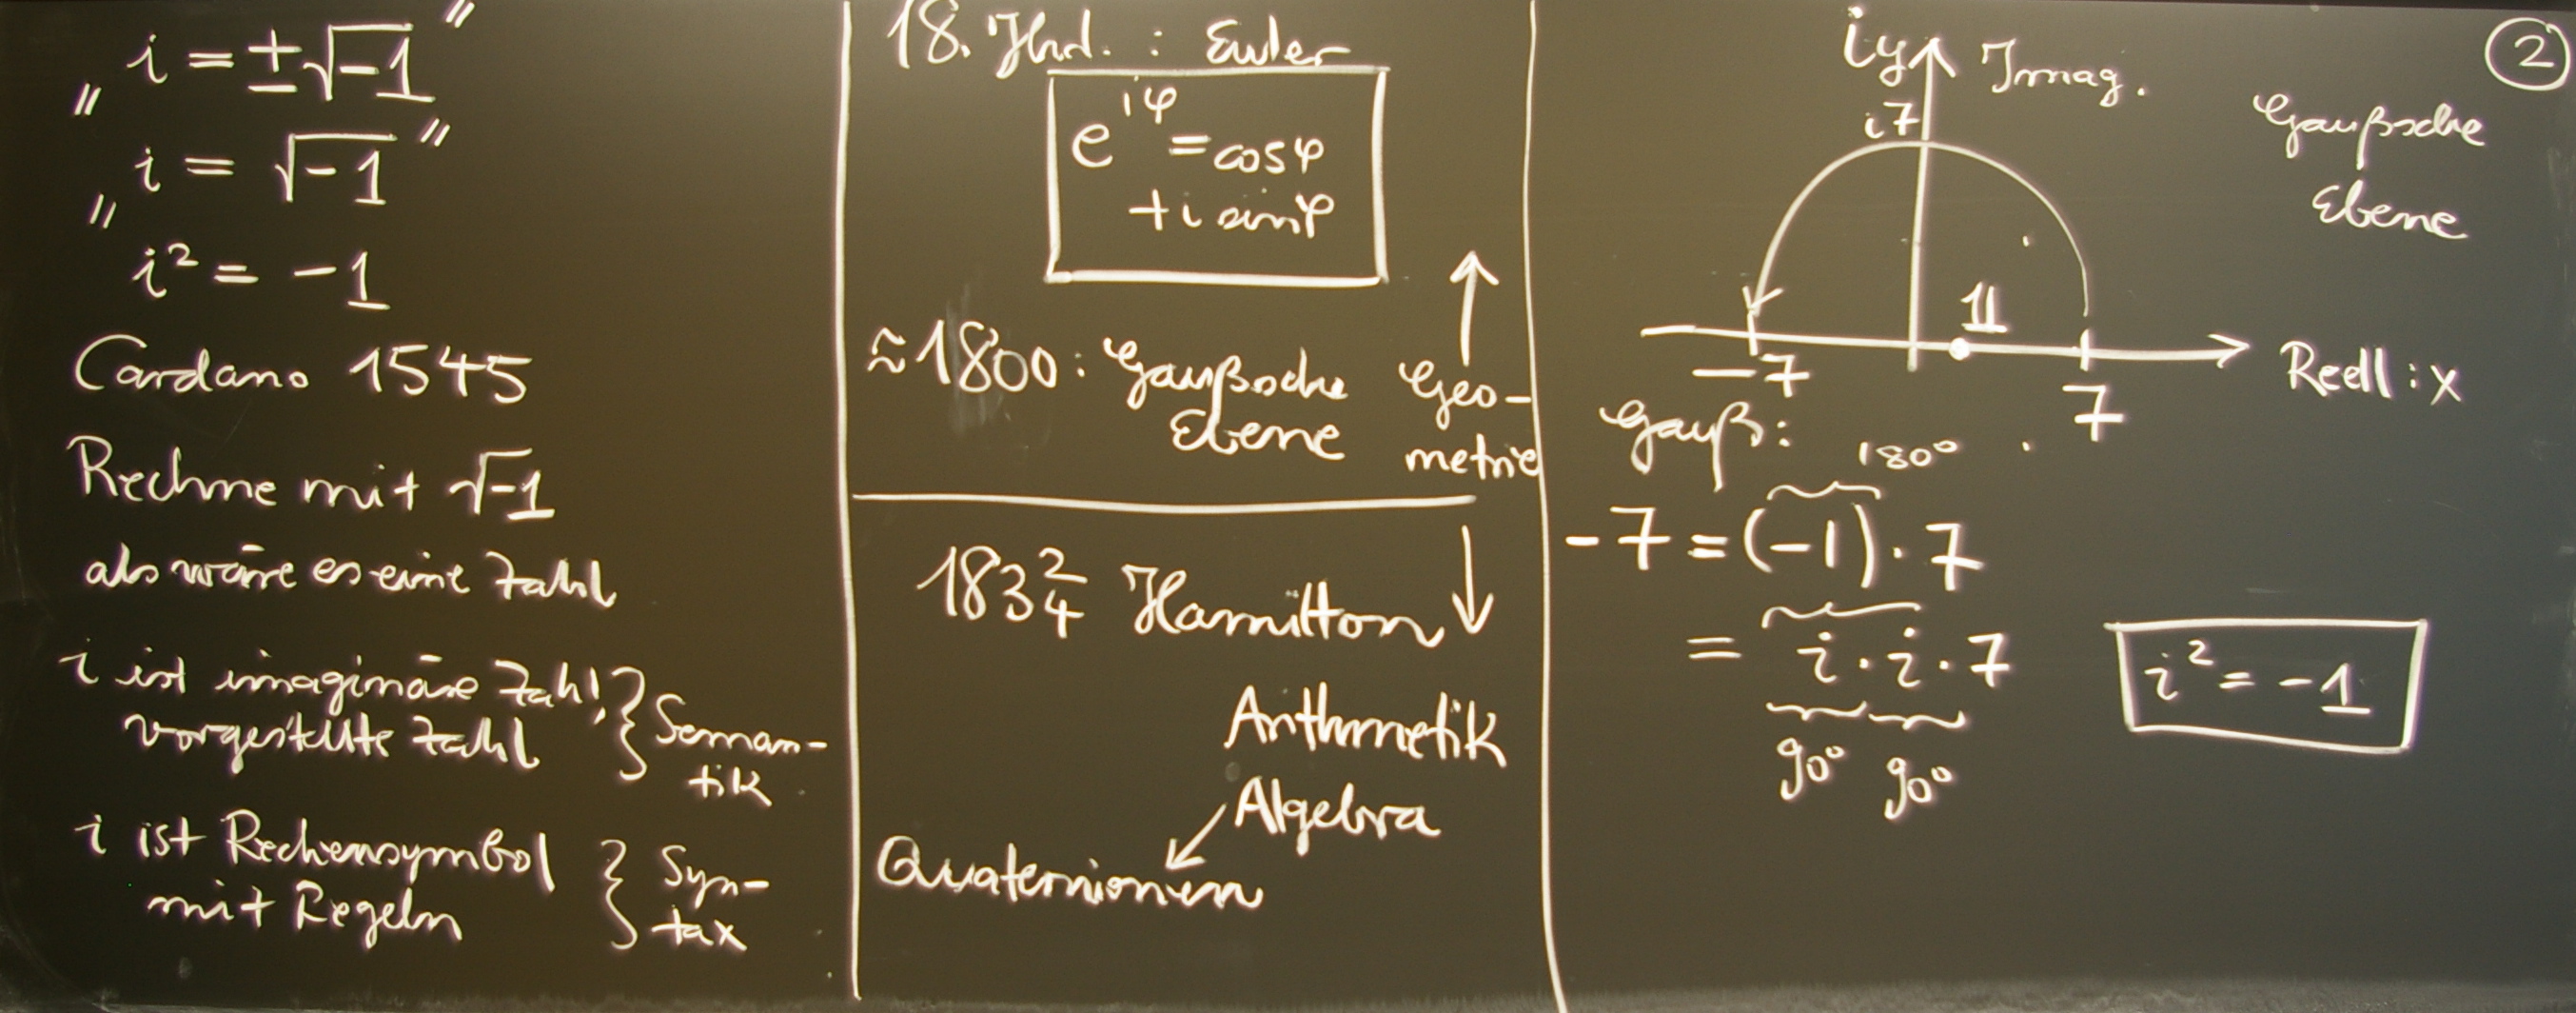 „ i = ±√-1 "
„ i = √-1 "
i² = -1
Cardano 1545
Rechne mit √-1
als wäre es eine Zahl
i ist imaginäre Zahl,
vorgestellte Zahl } Seman-
tik
i ist Rechensymbol
mit Regeln } Syn-
tax
18. Jhd. : Euler
e^{iφ} = cos φ
+ i sin φ
≈1800: Gaußsche
Ebene
Geo-
metrie
183 2/4 Hamilton
Arithmetik
Algebra
Quaternionen
2
iy Imag.
i7
Gaußsche
Ebene
1
-7
7
Reell : x
Gauß:
180°
-7 = (-1) · 7
= i · i · 7
90° 90°
i² = -1